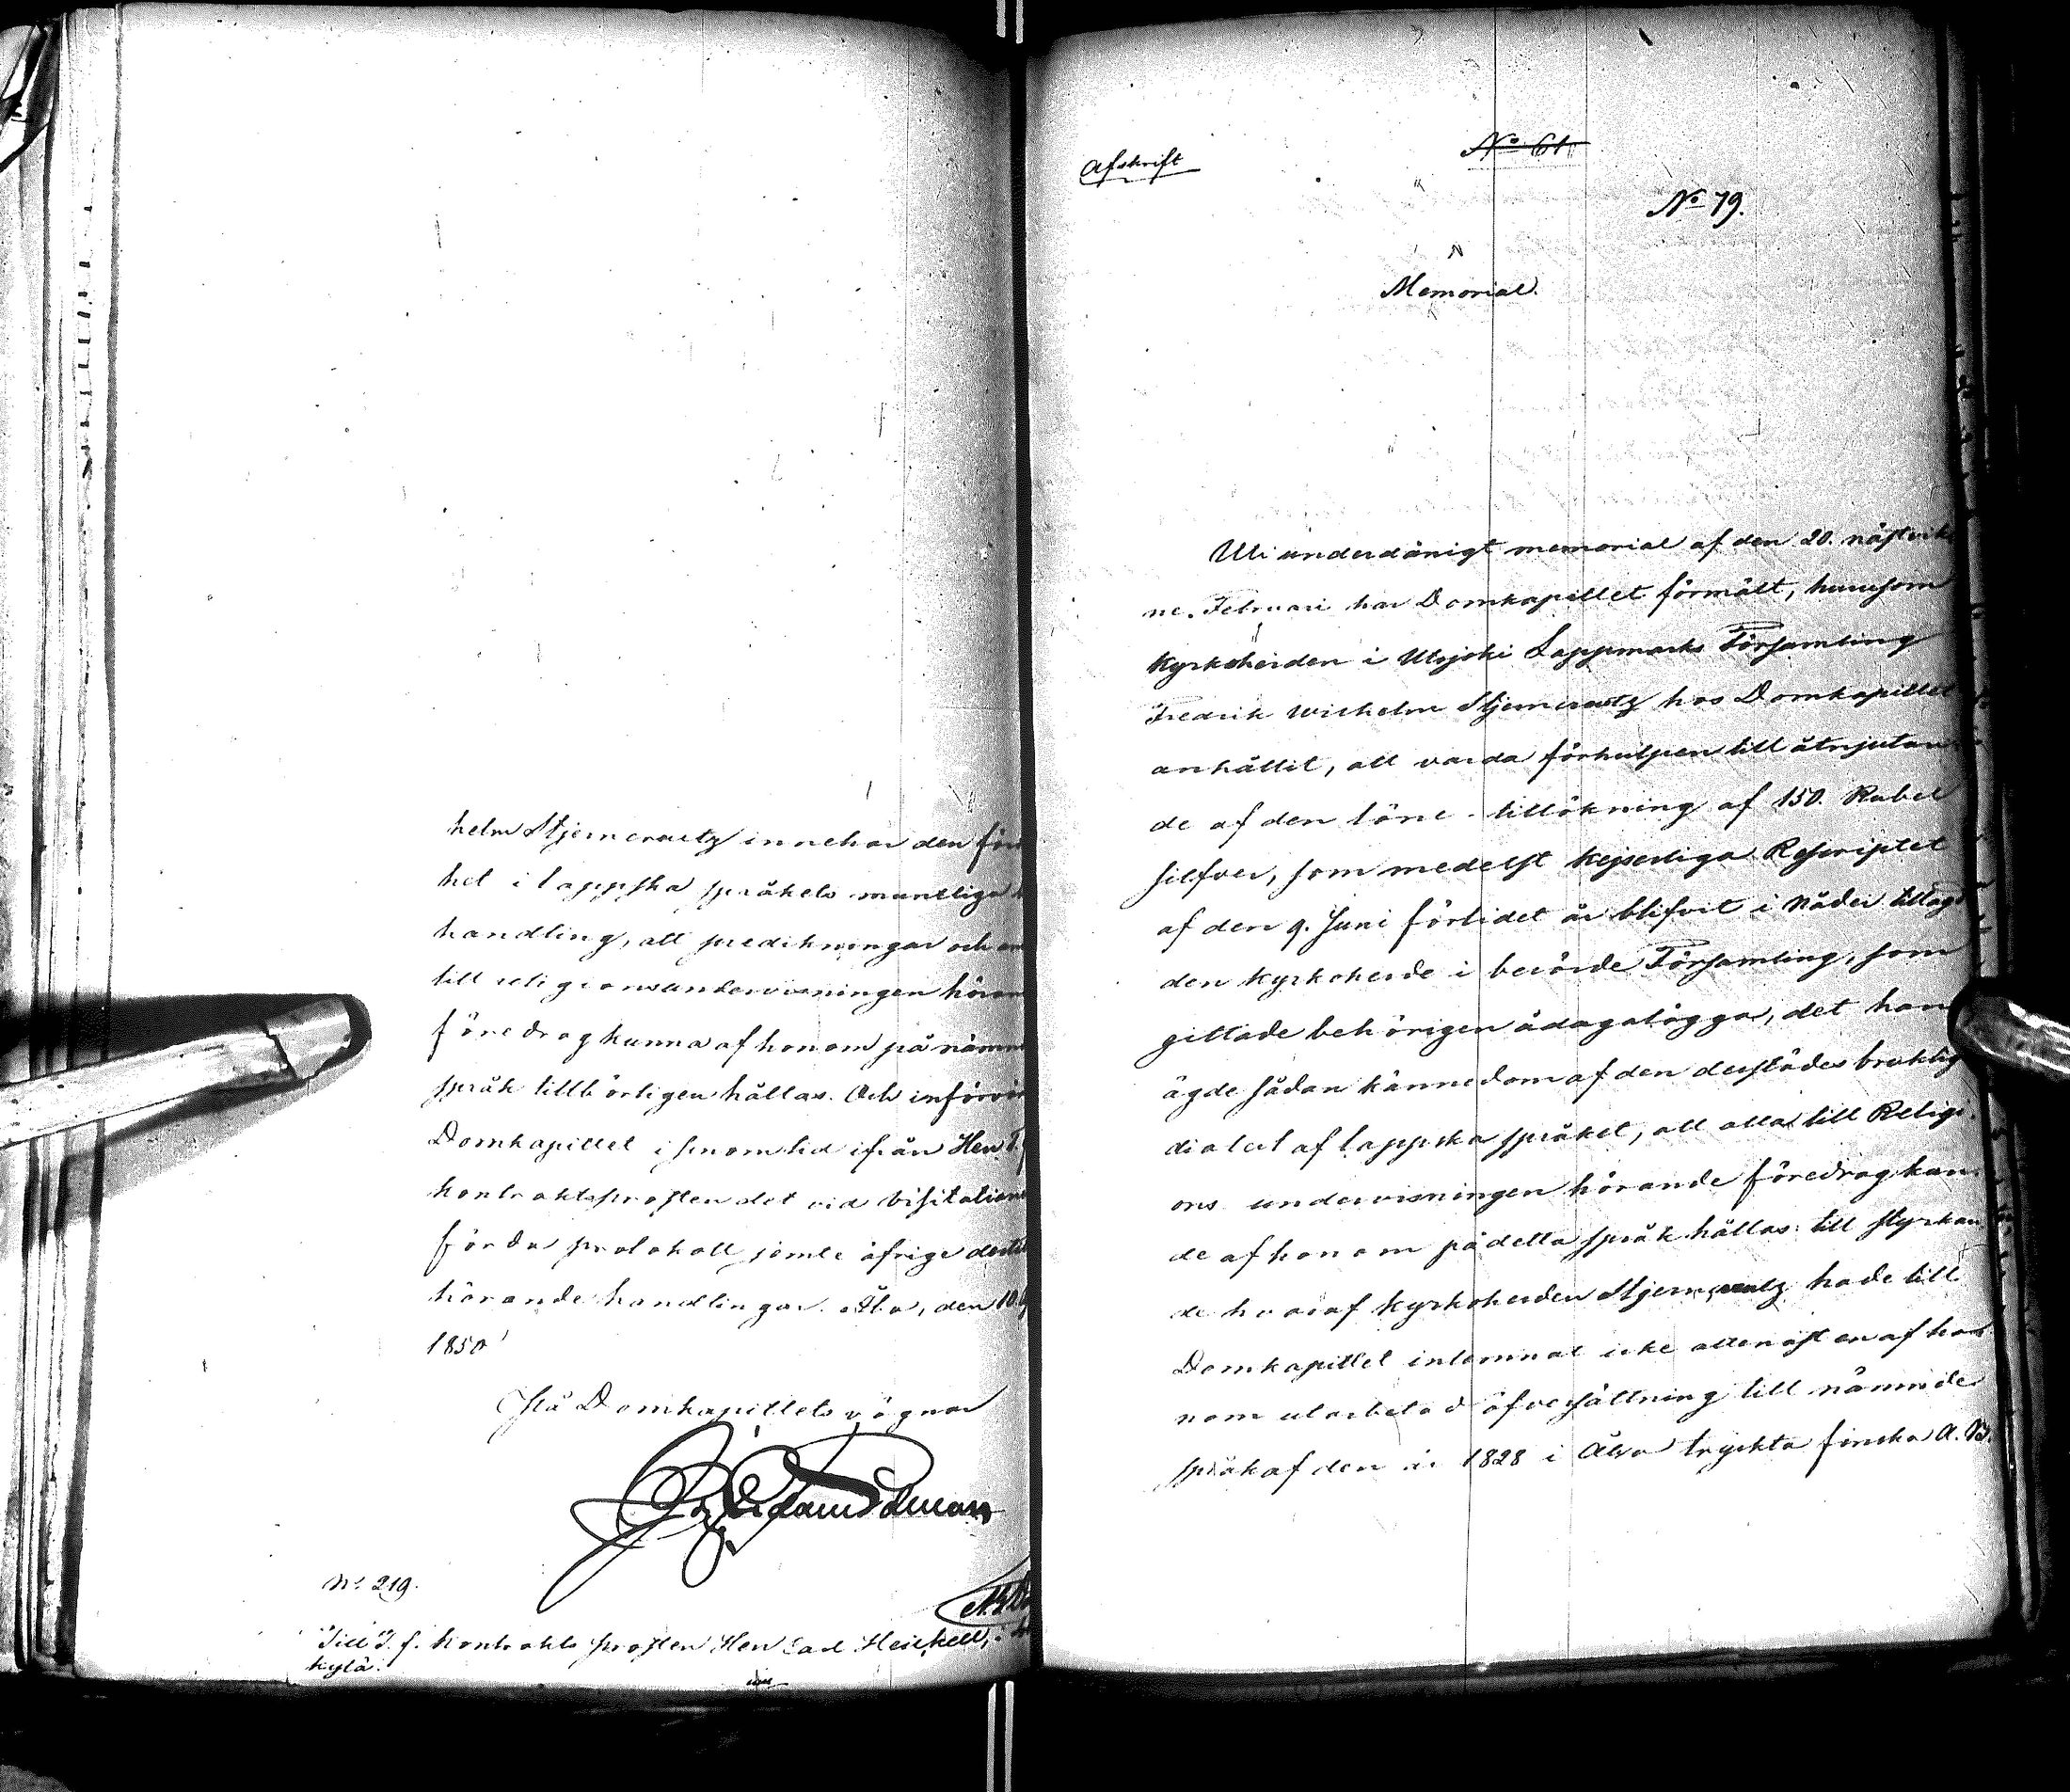 helm Stjerncreutz innehar den
het i lappska språkets muntliga
handling, att predikningar och
till religionsundervisningen
föredrag kunna af honom på
språk tillbörligen hållas. Och
Domkapitlet i sinom tid ifrån Herr
kontraktsprosten det vid
förda protokoll jemte öfrige
hörande handlingar. Åbo, den 10
1850
På Domkapitlets vägnar
No 219.
Till T. f. kontrakts prosten Herr Carl Heickell, i
kylä.
Afskrift
No 61.
No 79.
Memorial.
Uti underdånigt memorial af den 20. nästvik
ne Februari har Domkapitlet förmält, hurusom
Kyrkoherden i Utsjoki Lappmarks Församling
Fredrik Wilhelm Stjerncreutz hos Domkapitlet
anhållit, att varda förhulpen till åtnjutan
de af den löne-tillökning af 150. Rubel
silfver, som medelst Kejserliga Rescriptet
af den 9. Juni förlidet år blifvit i Nåder tillagd
den Kyrkoherde i berörde Församling, som
gittade behörigen ådagalägga, det han
ägde sådan kännedom af den derstädes brukliga
dialect af lappska språket, att alla till Religi
ons undervisningen hörande föredrag kun
de af honom på detta språk hållas: till styrkan
de hvaraf Kyrkoherden Stjerncreutz hade till
Domkapitlet inlemnat icke allenast en af ho
nom utarbetad öfversättning till nämnde
språk af den år 1828 i Åbo tryckta finska A. B.